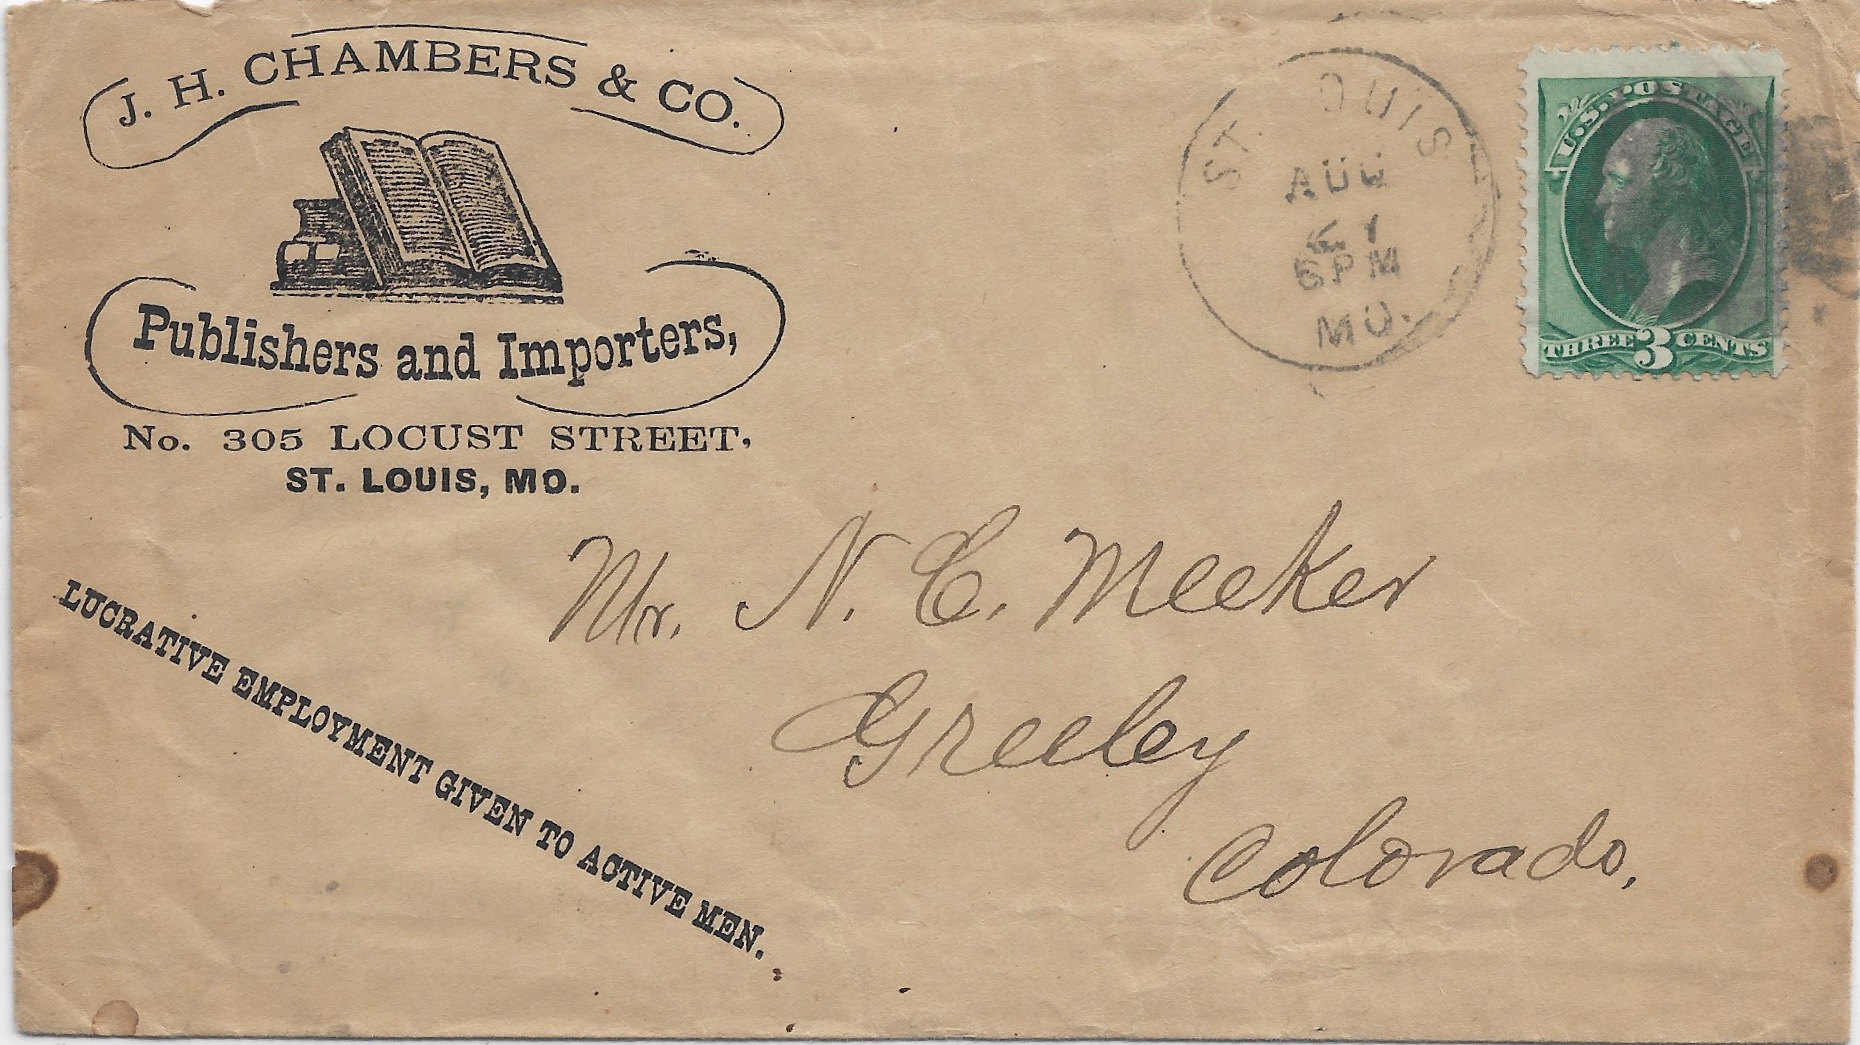 J. H. CHAMBERS & CO.
Publishers and Importers,
No. 305 LOCUST STREET,
ST. LOUIS, MO.
LUCRATIVE EMPLOYMENT GIVEN TO ACTIVE MEN.
ST. OUIS
AUG
6 PM
MO.
U.S. POSTAGE
THREE 3 CENTS
Mr. N. C. Meeker
Greeley
Colorado,